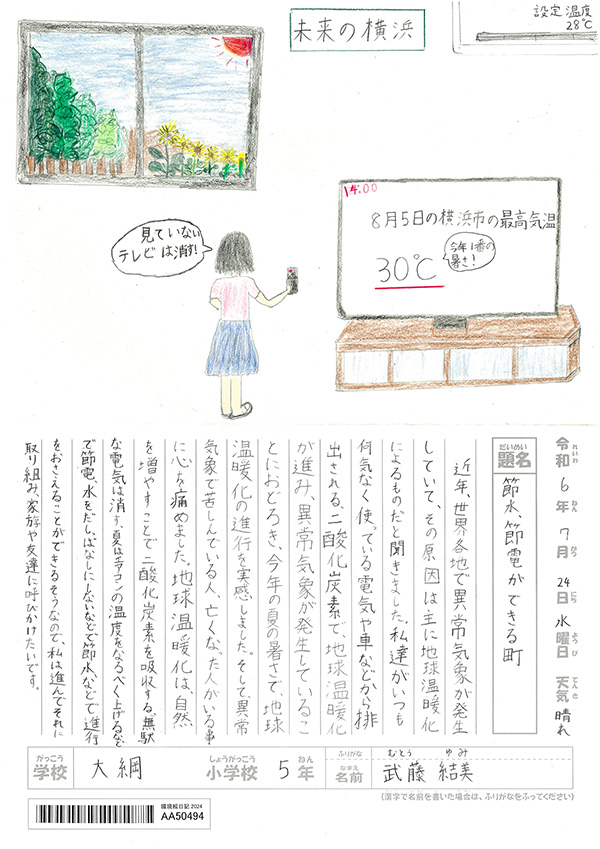 未来の横浜
設定温度
28℃
14:00
8月5日の横浜市の最高気温
30℃
今年1番の
暑さ!
見ていない
テレビは消す!
令和6年7月24日水曜日 天気 晴れ
れいわ ねん がつ にち ようび てんき
だいめい
題名
節水、節電ができる町
近年、世界各地で異常気象が発生
していて、その原因は主に地球温暖化
によるものだと聞きました。私達がいつも
何気なく使っている電気や車などから排
出される、二酸化炭素で、地球温暖化
が進み、異常気象が発生しているこ
とにおどろき、今年の夏の暑さで、地球
温暖化の進行を実感しました。そして、異常
気象で苦しんでいる人、亡くなった人がいる事
に心を痛めました。地球温暖化は、自然
を増やすことで二酸化炭素を吸収する、無駄
な電気は消す、夏はエアコンの温度をなるべく上げるなど
で節電、水をだしっぱなしにしないなどで節水、などで進行
をおさえることができるそうなので、私は進んでそれに
取り組み、家族や友達に呼びかけたいです。
がっこう しょうがっこう ねん ふりがな むとう ゆみ
学校 大綱 小学校 5年 なまえ 名前 武藤 結美
(漢字で名前を書いた場合は、ふりがなをふってください)
環境絵日記 2024
AA50494